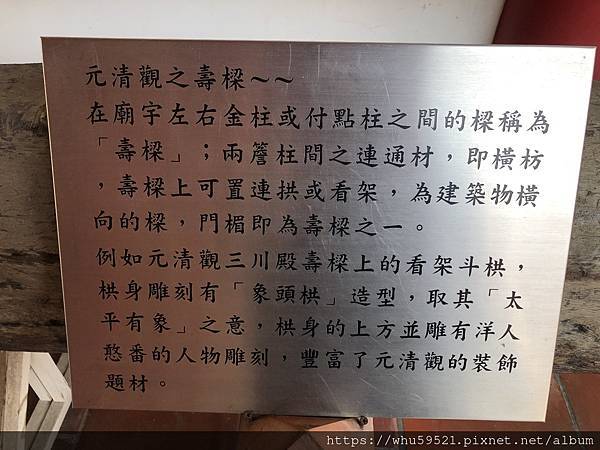 元清觀之壽樑～～
在廟宇左右金柱或付點柱之間的樑稱為
「壽樑」；兩簷柱間之連通材，即橫枋
，壽樑上可置連拱或看架，為建築物橫
向的樑，門楣即為壽樑之一。
例如元清觀三川殿壽樑上的看架斗栱，
栱身雕刻有「象頭栱」造型，取其「太
平有象」之意，栱身的上方並雕有洋人
憨番的人物雕刻，豐富了元清觀的裝飾
題材。
https://whu59521.pixnet.net/album